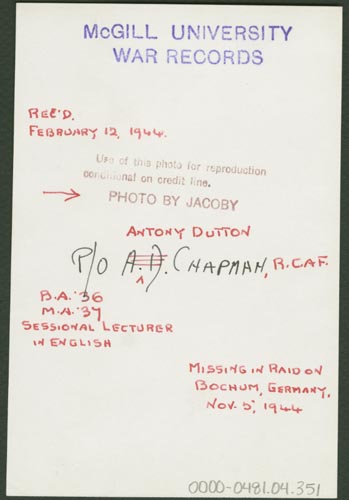 McGILL UNIVERSITY
WAR RECORDS
REC'D.
FEBRUARY 12, 1944.
Use of this photo for reproduction
conditional on credit line.
PHOTO BY JACOBY
ANTONY DUTTON
P/O A. D. CHAPMAN, R.C.A.F.
B.A. '36
M.A. '37
SESSIONAL LECTURER
IN ENGLISH
MISSING IN RAID ON
BOCHUM, GERMANY,
NOV. 5, 1944
0000-0481.04.351